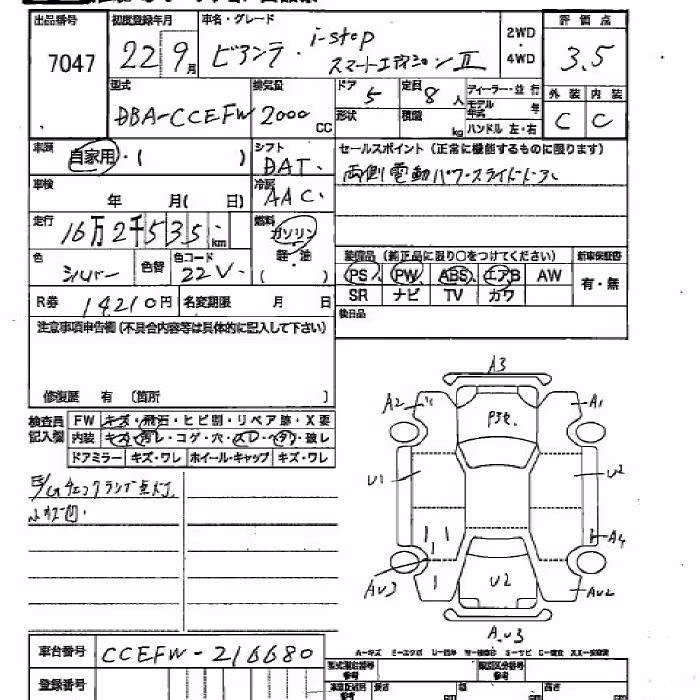 出品番号 初度登録年月 車名・グレード 2WD・4WD 評価点
7047 22 9月 ビアンテ i-stop
スマートエディションⅡ 3.5
型式 排気量 ドア 定員 ディーラー・並行
DBA-CCEFW 2000cc 5 8人 モデル年式 年
形状 積載 kg ハンドル 左・右
外装 内装
C C
車歴 自家用・( ) シフト DAT.
セールスポイント(正常に機能するものに限ります)
車検 年 月( 日) 冷房 AAC.
両側電動パワースライドドア
走行 16万2千535km 燃料 ガソリン
軽・油
( )
色 シルバー 色替 色コード 22V.
装備品(純正品に限り○をつけてください) 新車保証書
PS PW ABS エアB AW 有・無
SR ナビ TV カワ
R券 14210円 名変期限 月 日
後日品
注意事項申告欄(不具合内容等は具体的に記入して下さい)
修復歴 有 〔箇所 〕
検査員記入欄 FW キズ・飛石・ヒビ割・リペア跡・X要
内装 キズ・汚レ・コゲ・穴・スレ・ヘタリ・破レ
ドアミラー キズ・ワレ ホイール・キャップ キズ・ワレ
E/Gチェックランプ点灯
A3
A2 A1
P3セ.
U1 U2
A4
AU3 U2 AU2
A.U3
車台番号 CCEFW-216680
登録番号
A-キズ E-エクボ U-凹み W-補修跡 S-サビ C-腐食 XX-交換済
型式指定番号 類別区分番号
長さ 幅 高さ